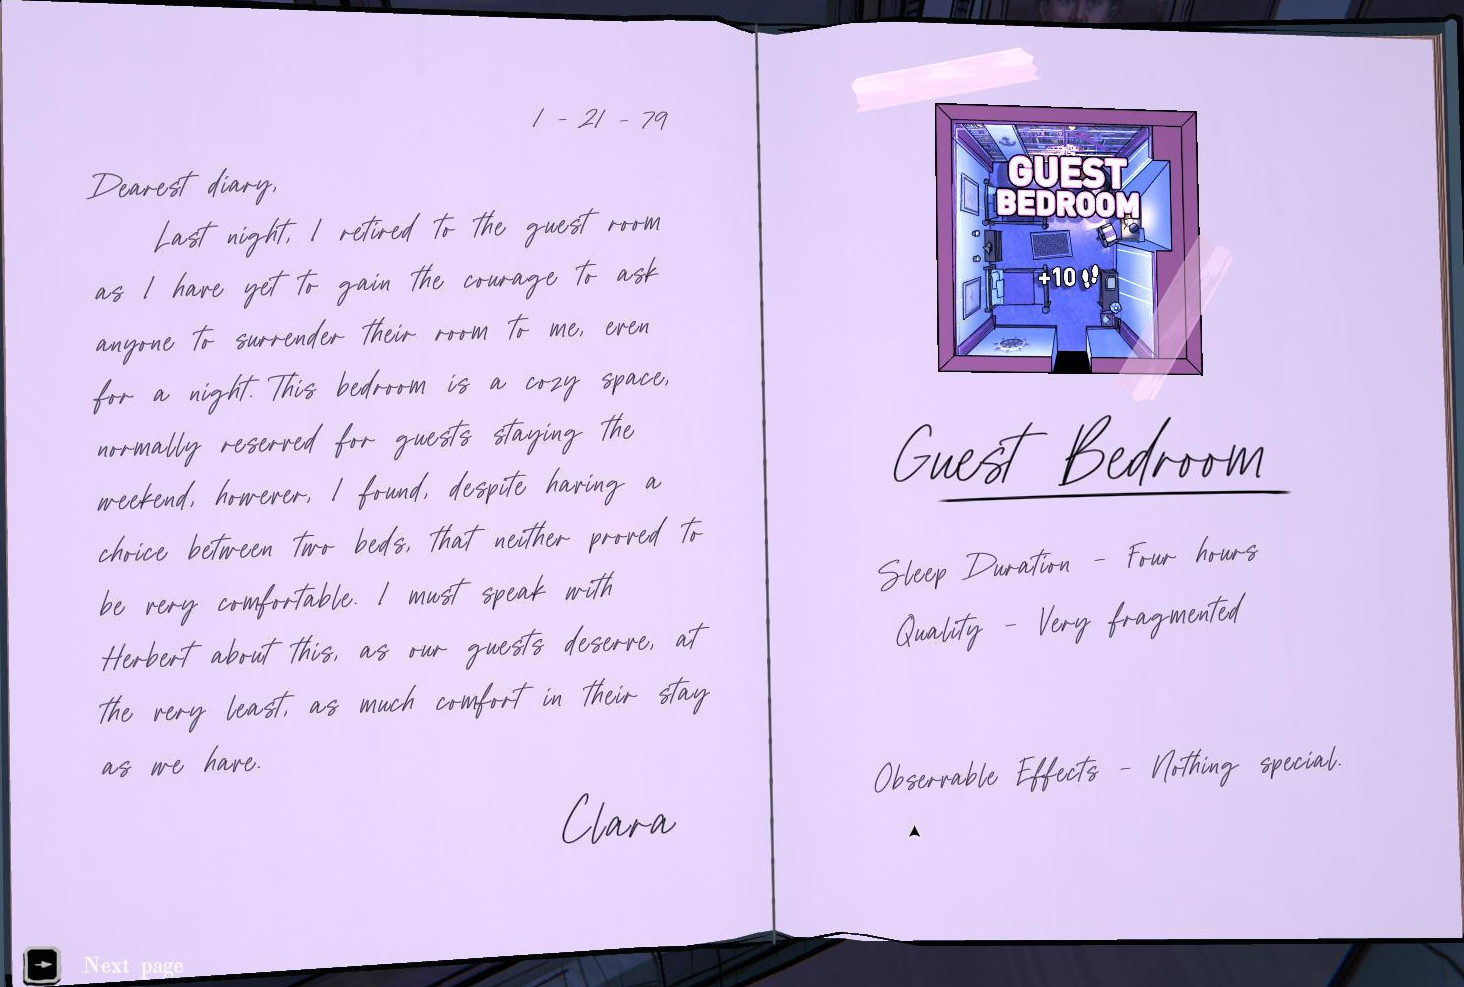 1 - 21 - 79
Dearest diary,
Last night, I retired to the guest room
as I have yet to gain the courage to ask
anyone to surrender their room to me, even
for a night. This bedroom is a cozy space,
normally reserved for guests staying the
weekend, however, I found, despite having a
choice between two beds, that neither proved to
be very comfortable. I must speak with
Herbert about this, as our guests deserve, at
the very least, as much comfort in their stay
as we have.
Clara
Next page
GUEST
BEDROOM
+10
Guest Bedroom
Sleep Duration - Four hours
Quality - Very fragmented
Observable Effects - Nothing special.